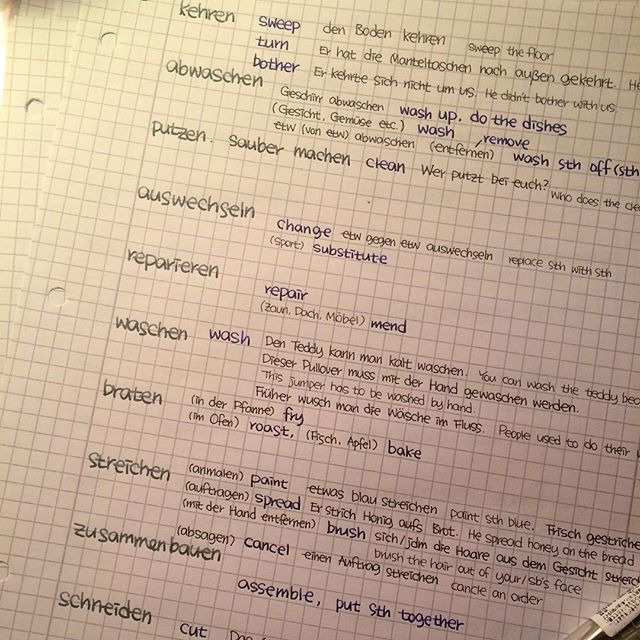 kehren sweep den Boden kehren sweep the floor
turn Er hat die Manteltaschen nach außen gekehrt. He
bother Er kehrte sich nicht um us. He didn't bother with us.
abwaschen
Geschirr abwaschen wash up, do the dishes
(Gesicht, Gemüse etc.) wash remove
etw (von etw) abwaschen (entfernen) wash sth off (sth
putzen. sauber machen clean Wer putzt bei euch? Who does the cle
auswechseln
change etw gegen etw auswechseln replace sth with sth
(Sport) substitute
reparieren
repair
(Zaun, Dach, Möbel) mend
waschen wash Den Teddy kann man kalt waschen. You can wash the teddy bea
Dieser Pullover muss mit der Hand gewaschen werden.
This jumper has to be washed by hand.
Früher wusch man die Wäsche im Fluss. People used to do their
braten (in der Pfanne) fry
(im Ofen) roast, (Fisch, Apfel) bake
streichen (anmalen) paint etwas blau streichen paint sth blue. Frisch gestriche
(auftragen) spread Er strich Honig aufs Brot. He spread honey on the bread
(mit der Hand entfernen) brush sich/jdm die Haare aus dem Gesicht streic
brush the hair out of your/sb's face
(absagen) cancel einen Auftrag streichen cancle an order
zusammenbauen
assemble, put sth together
schneiden
cut